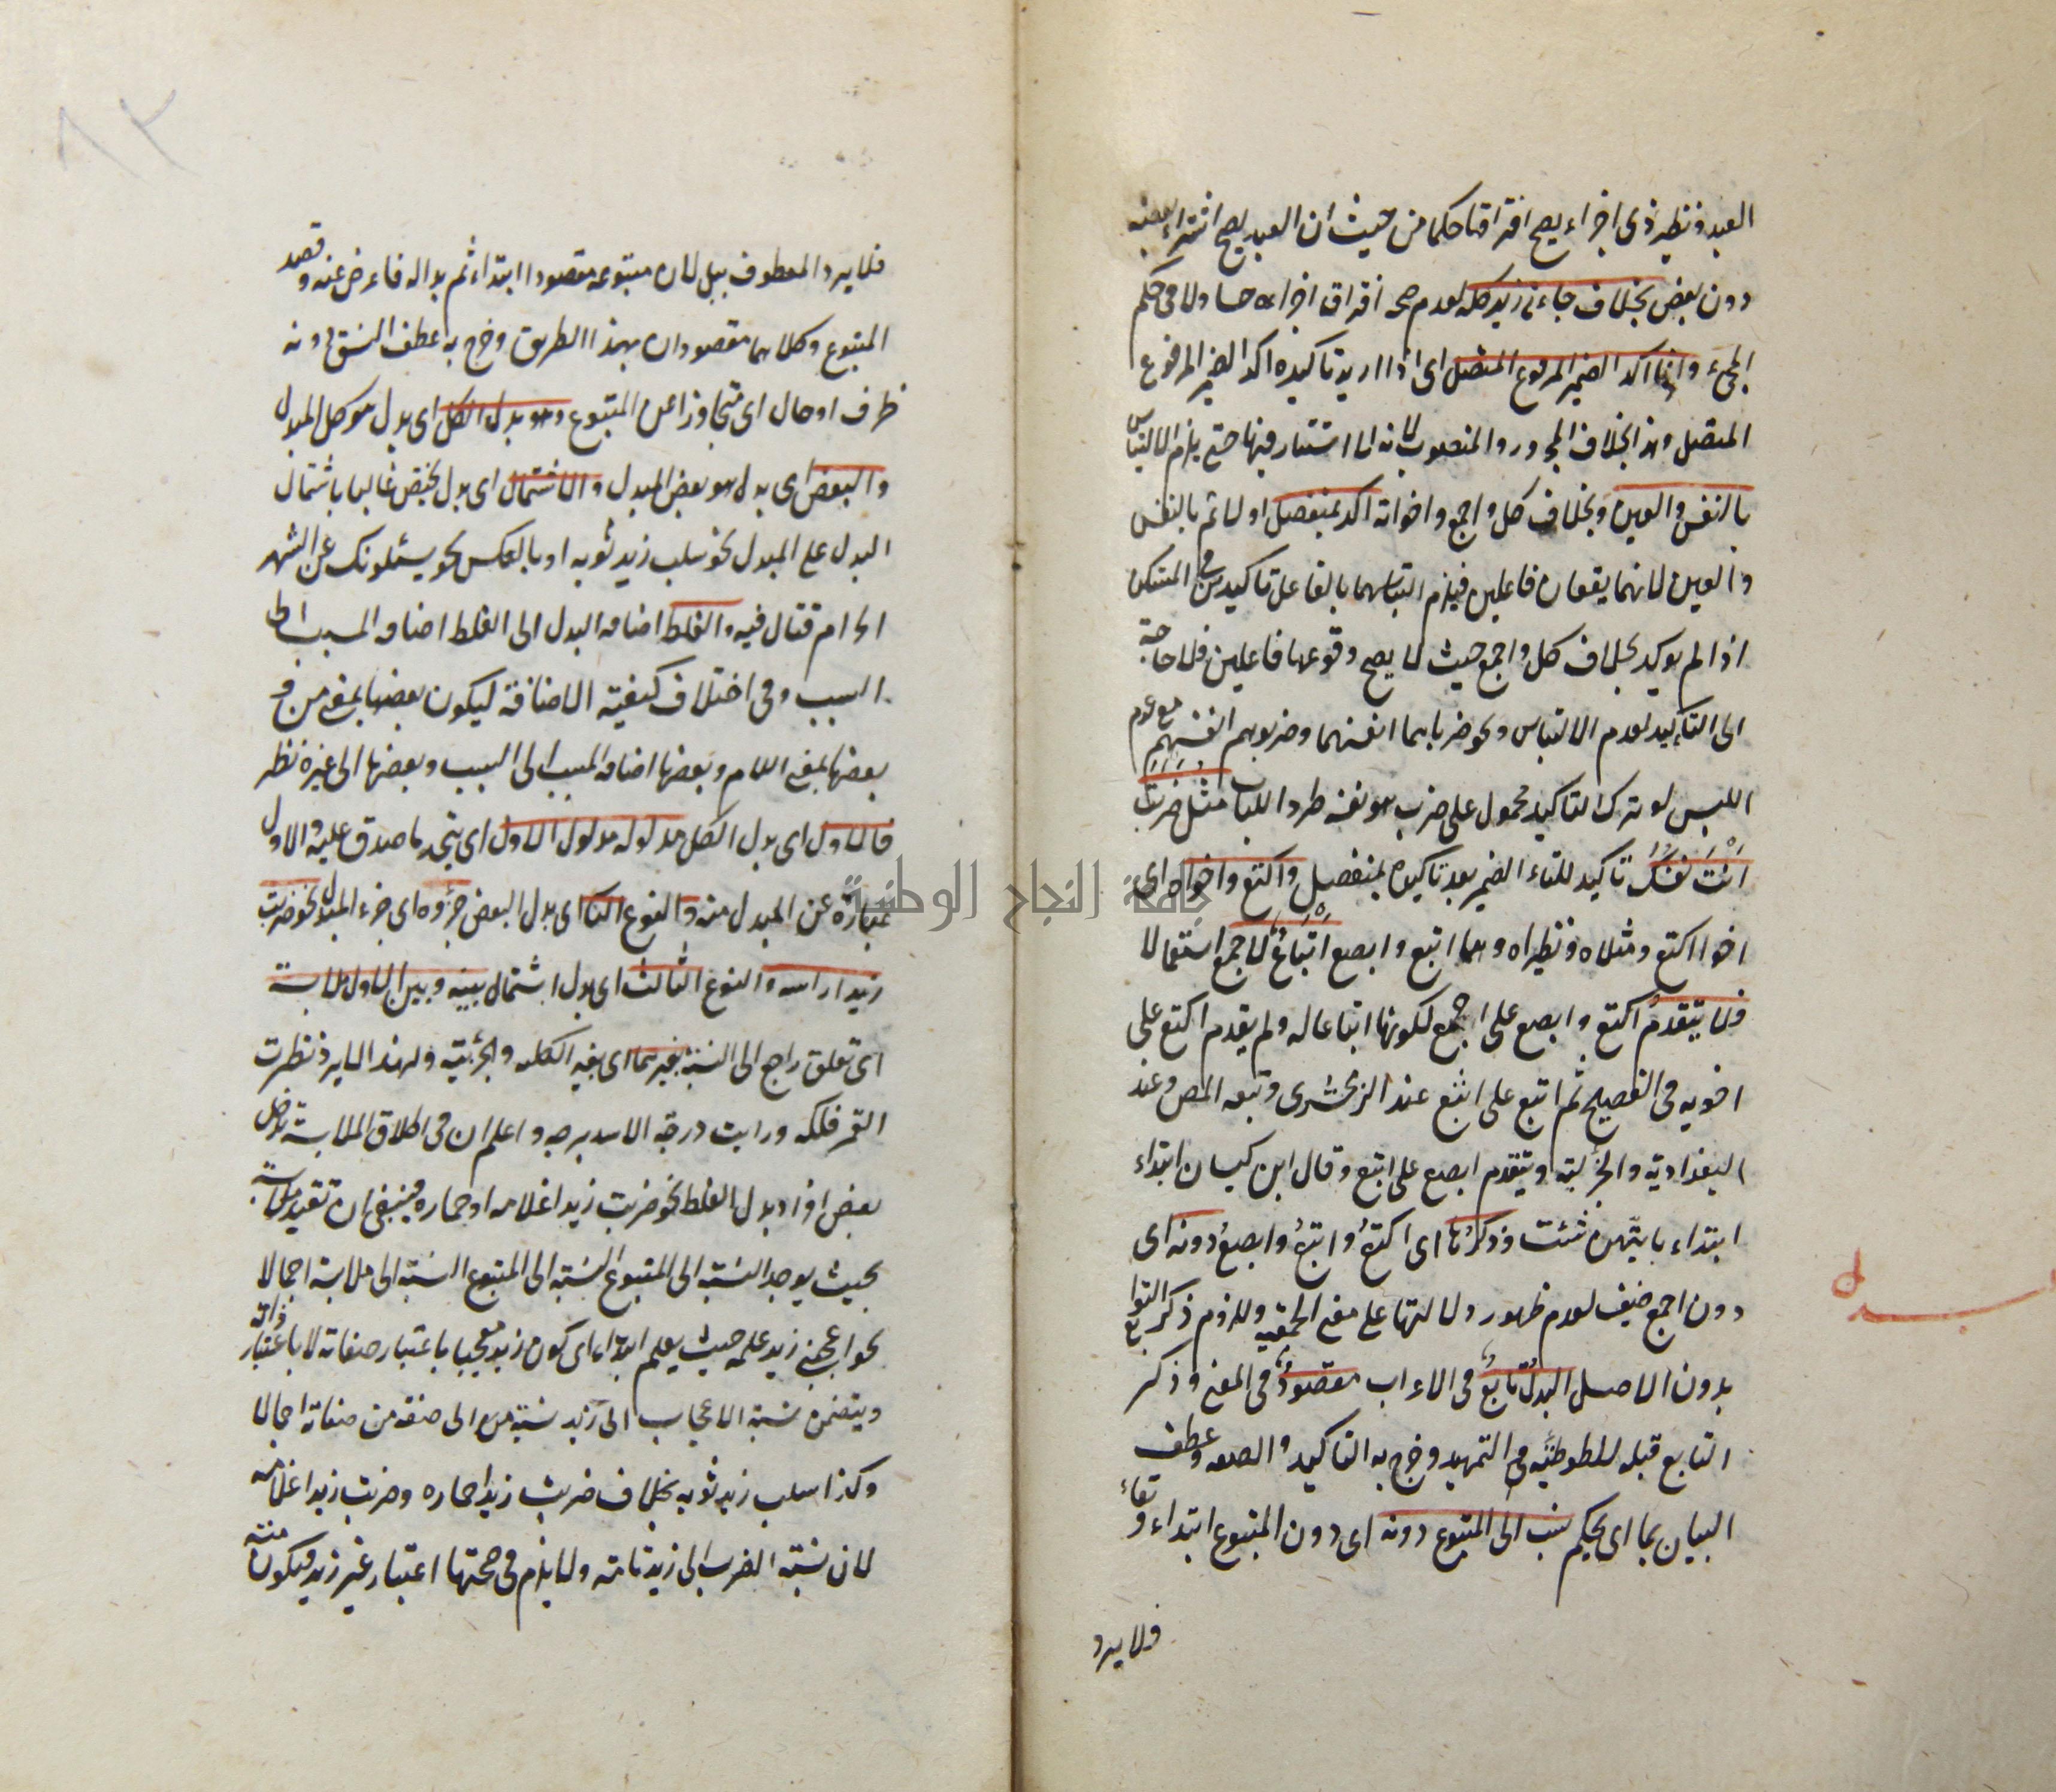 العبد ونظيره ذى اجزاء يصح افتراقها حكما من حيث ان العبد يصح اشتراء بعضه
دون بعض بخلاف جاءنى زيد كله لعدم صحة افتراق اجزائه حسا ولا فى حكم
المجىء واذا اكد الضمير المرفوع المتصل اى اذا اريد تاكيده اكد الضمير المرفوع
المتصل وهذا بخلاف المجرور والمنصوب لانه لا استتار فيها حتى يلزم الالتباس
بالنفس والعين وبخلاف كل واجمع واخواته اكد بمنفصل اولا ثم بالنفس
والعين لانهما يقعان فاعلين فيلزم التباسهما بالفاعل تاكيد من فى المستكن
اذا لم يوكد بخلاف كل واجمع حيث لا يصح وقوعها فاعلين فلا حاجة
الى التاكيد لعدم الالتباس ونحو ضرباهما انفسهما وضربوهم انفسهم مع عدم
اللبس لو ترك التاكيد محمول على ضرب هو نفسه طردا للباب مثل ضربت
انت نفسك تاكيد للتاء الضمير بعد تاكيده بمنفصل واكتع واخواه اى
اخوا اكتع ومثلاه ونظيراه وهما اتبع وابصع اتباع لاجمع استعمالا
فلا يتقدم اكتع وابصع على اجمع لكونها اتباعا له ولم يقدم اكتع على
اخويه فى الفصيح ثم اتبع على اتبع عند الزمخشرى وتبعه المص وعند
البغدادية والجزلية ويتقدم ابصع على اتبع وقال ابن كيسان ابتداء
ابتداء بايتهن شئت وذكرها اى اكتع واتبع وابصع دونه اى
دون اجمع ضعيف لعدم ظهور دلالتها على معنى الجمعية وللزوم ذكر التوابع
بدون الاصل البدل تابع فى الاعراب مقصود فى المعنى وذكر
التابع قبله للطوطئة فى التمهيد وخرج به التاكيد والصفة وعطف
البيان بما اى بحكم نسب الى المتبوع دونه اى دون المتبوع ابتداء وبقاء
فلا يرد
بدل
فلا يرد المعطوف ببل لان متبوعه مقصودا ابتداء ثم بدا له فاعرض عنه وقصد
المتبوع وكلاهما مقصودان بهذا الطريق وخرج به عطف النسق دونه
ظرف او حال اى متجاوزا عن المتبوع وهو بدل الكل اى بدل هو كل المبدل
والبعض اى بدل هو بعض المبدل والاشتمال اى بدل يختص غالبا باشتمال
البدل على المبدل نحو سلب زيد ثوبه او بالعكس نحو يسئلونك عن الشهر
الحرام قتال فيه والغلط اضافة البدل الى الغلط اضافة المسبب الى
السبب وفى اختلاف كيفية الاضافة ليكون بعضها بمعنى من و
بعضها بمعنى اللام وبعضها اضافة المسبب الى السبب وبعضها الى غيره نظر
فالاول اى بدل الكل مدلوله مدلول الاول اى يتحد ما صدق عليه والاول
عبارة عن المبدل منه والنوع الثانى اى بدل البعض جزؤه اى جزء المبدل نحو ضربت
زيدا راسه والنوع الثالث اى بدل اشتمال بينه وبين الاول ملابسة
اى تعلق راجع الى النسبة بغيرهما اى بغير الكلية والجزئية ولهذا لا يرد نظرت
القمر فلكه ورايت درجة الاسد برجه واعلم ان فى اطلاق الملابسة يدخل
بعض افراد بدل الغلط نحو ضربت زيدا غلامه او حماره فينبغى ان تقيد ملابسة
بحيث يوجد النسبة الى المتبوع النسبة الى المتبوع النسبة الى ملابسه اجمالا
نحو اعجبنى زيد علمه حيث يعلم ابتداء اى كون زيد معجبا باعتبار صفاته لا باعتبار ذاته
ويتضمن نسبة الاعجاب الى زيد نسبته الى صفة من صفاته اجمالا
وكذا سلب زيد ثوبه بخلاف ضربت زيدا حماره وضربت زيدا غلامه
لان نسبة الضرب الى زيد تامة ولا يلزم فى صحتها اعتبار غير زيد فيكون منه
٨٢
جامعة النجاح الوطنية